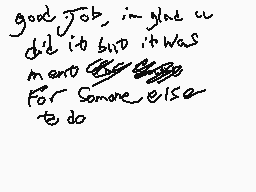 good Job, im glad u
did it but it was
ment
For Somone else
to do